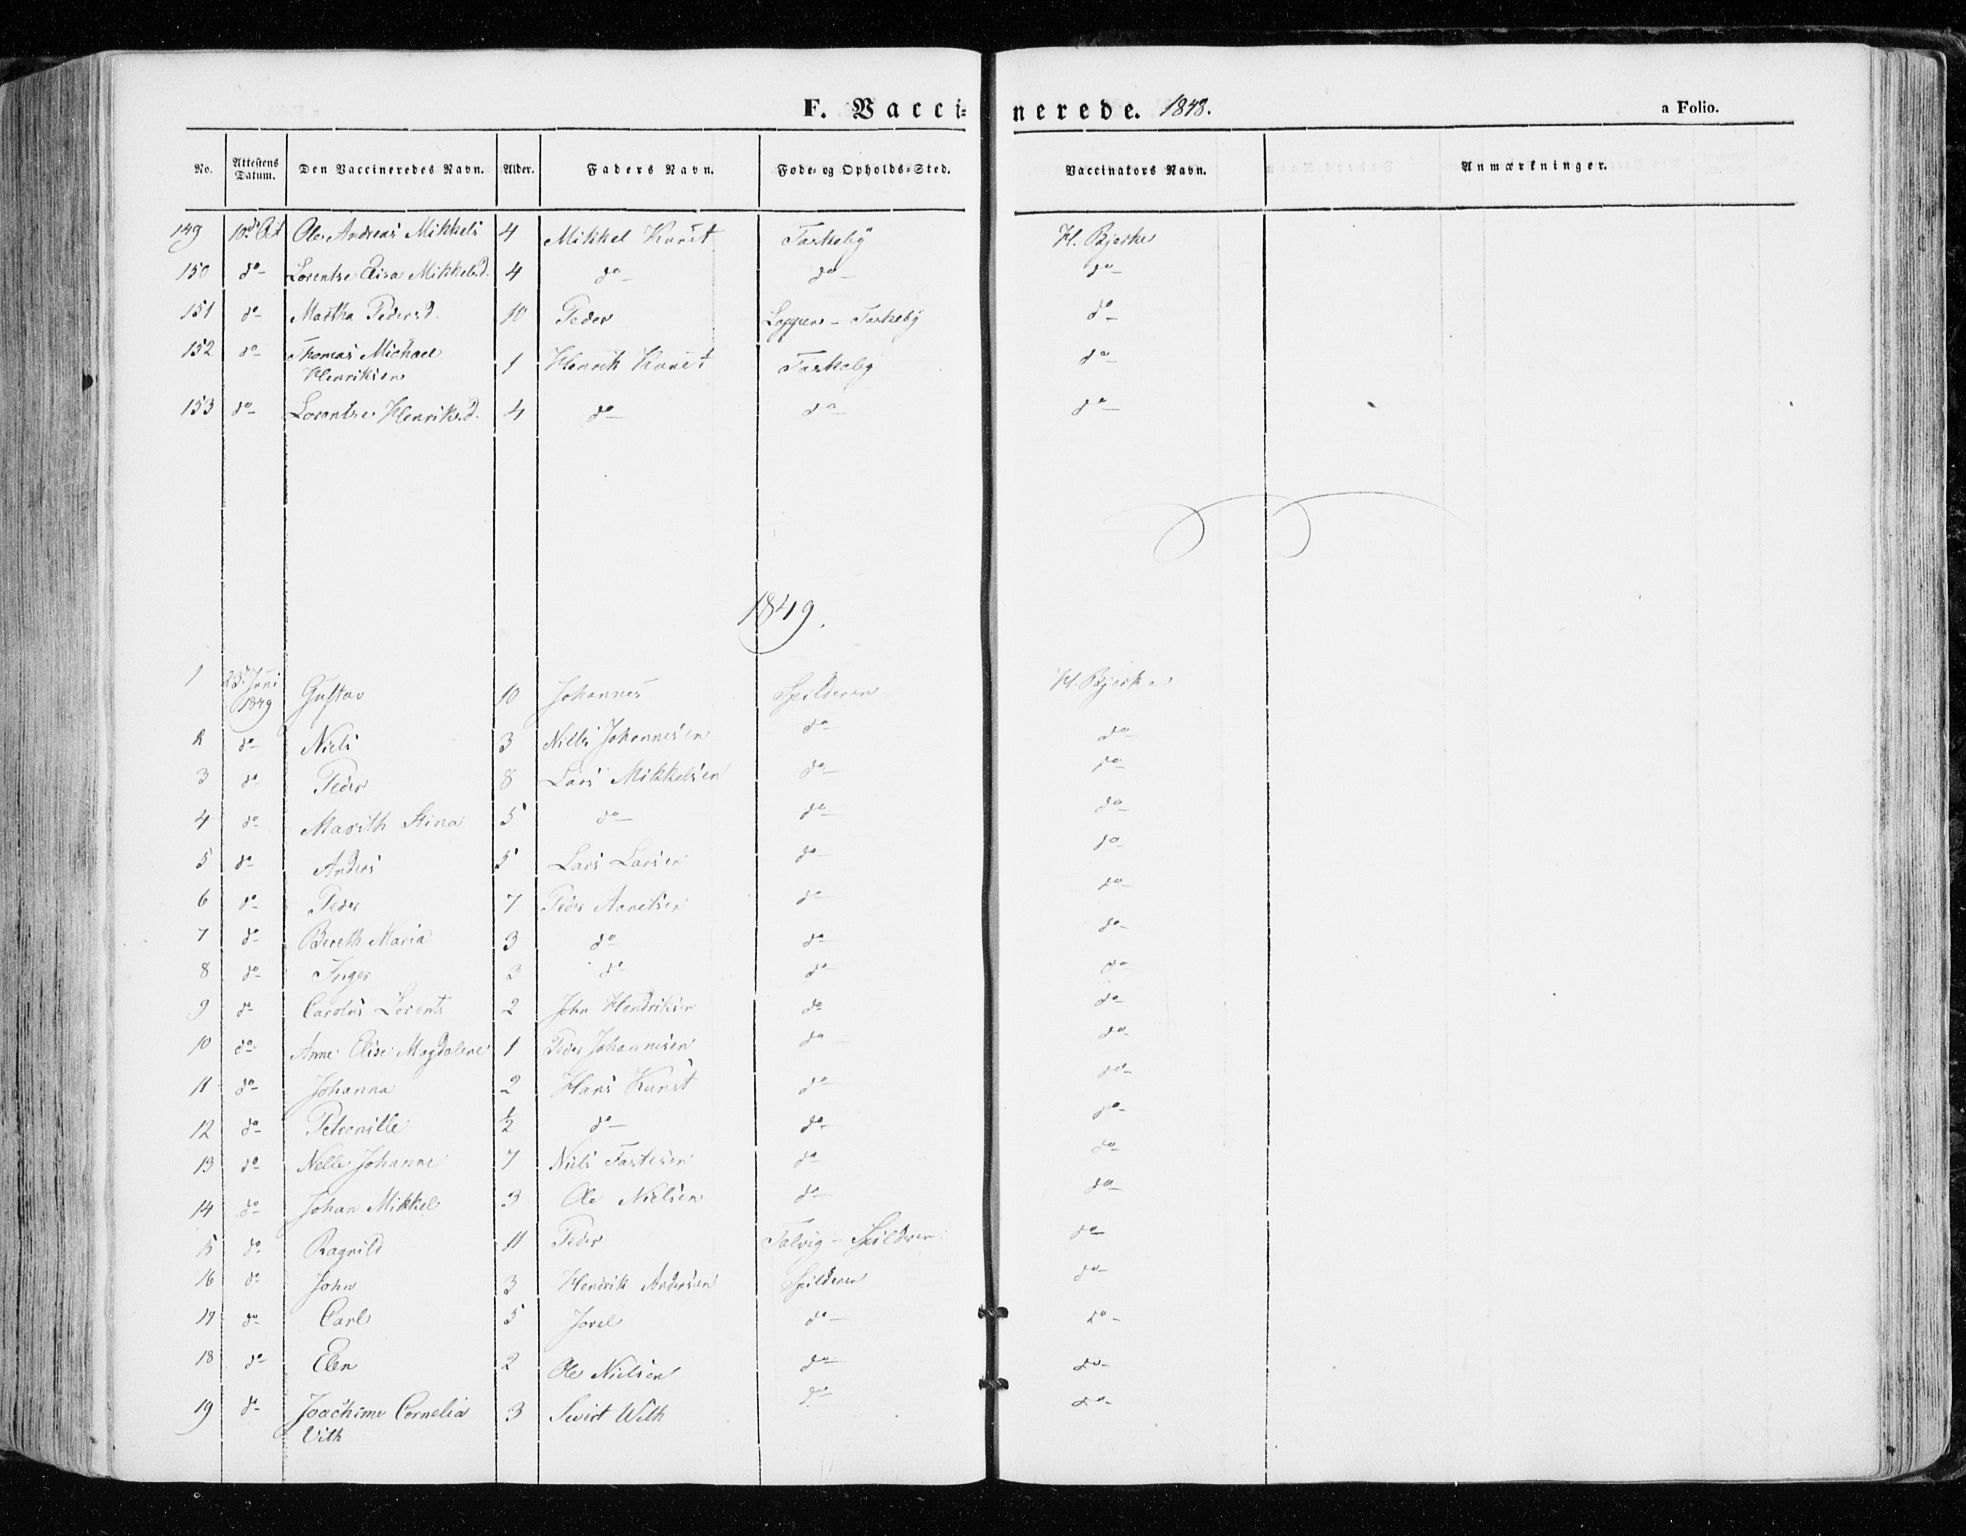 F. Vaccinerede. 1848. a Folio.
No. Attestens Datum. Den Vaccineredes Navn. Alder. Faders Navn. Føde- og Opholds-Sted. Vaccinators Navn. Anmærkninger.
149 10de Ole Andreas Mikkels 4 Mikkel H. Bjerke
150 do Lorentse Elisa Mikkelsd. 4 do do do
151 do Martha Pedersd. 10 Peder Loppen - Taskeby do
152 do Thomas Michael
Henriksen 1 Henrik Taskeby do
153 do Lorentse Henriksd. 4 do do do
1849.
1 25de Juni
1849 Gustav 10 Johannes Spilderen H. Bjerke
2 do Niels 3 Nills Johannesen do do
3 do Peder 8 Lars Mikkelsen do do
4 do Marith Stina 5 do do do
5 do Anders 5 Lars Larsen do do
6 do Peder 7 Peder do do
7 do Bereth Maria 3 do do do
8 do Inger 3 do do do
9 do Carolus Lorents 2 John Hendriksen do do
10 do Anne Elise Magdalene 1 Peder Johannesen do do
11 do Johanna 2 Hans Kunst do do
12 do Petronille 1/2 do do do
13 do Nelle Johanne 7 Niels do do
14 do Johan Mikkel 3 Ole Nielsen do do
15 do Ragnild 11 Peder Talvig - Spilderen do
16 do John 3 Hendrik Andersen Spilderen do
17 do Carl 5 do do
18 do Elen 2 Ole Nielsen do do
19 do Joachime Cornelia
Vith 3 Sivert With do do